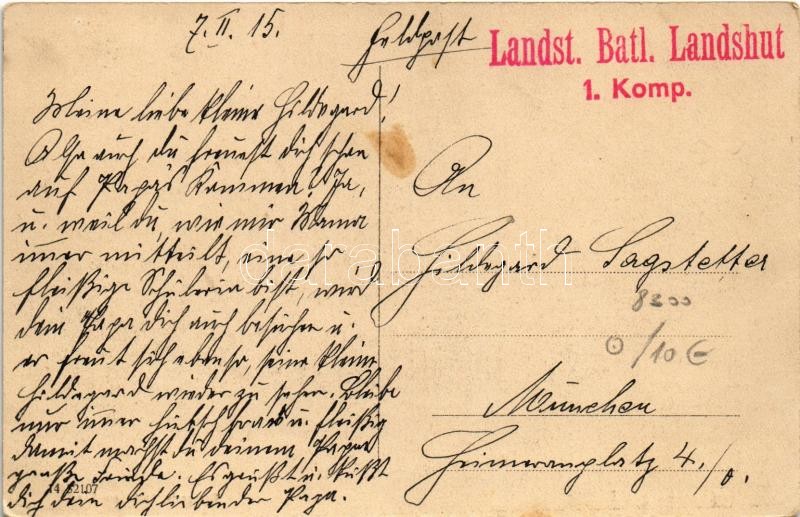 7. II. 15.
Feldpost
Landst. Batl. Landshut
1. Komp.
Meine liebe kleine Hildegard!
Also auch du freuest dich schon
auf Papas Kommen! Ja,
u. weil du, wie mir Mama
immer mitteilt, eine so
fleißige Schülerin bist, wird
dein Papa dich auch besuchen u.
er freut sich ebenso, seine kleine
Hildegard wieder zu sehen. Bleibe
nur immer hübsch brav u. fleißig
damit machst du deinem Papa
große Freude. Es grüßt u. küßt
dich dein dichliebender Papa.
14 52107
An
Hildegard Sagstetter
München
Heimeranplatz 4./0.
8300
0/10 €
darabanth